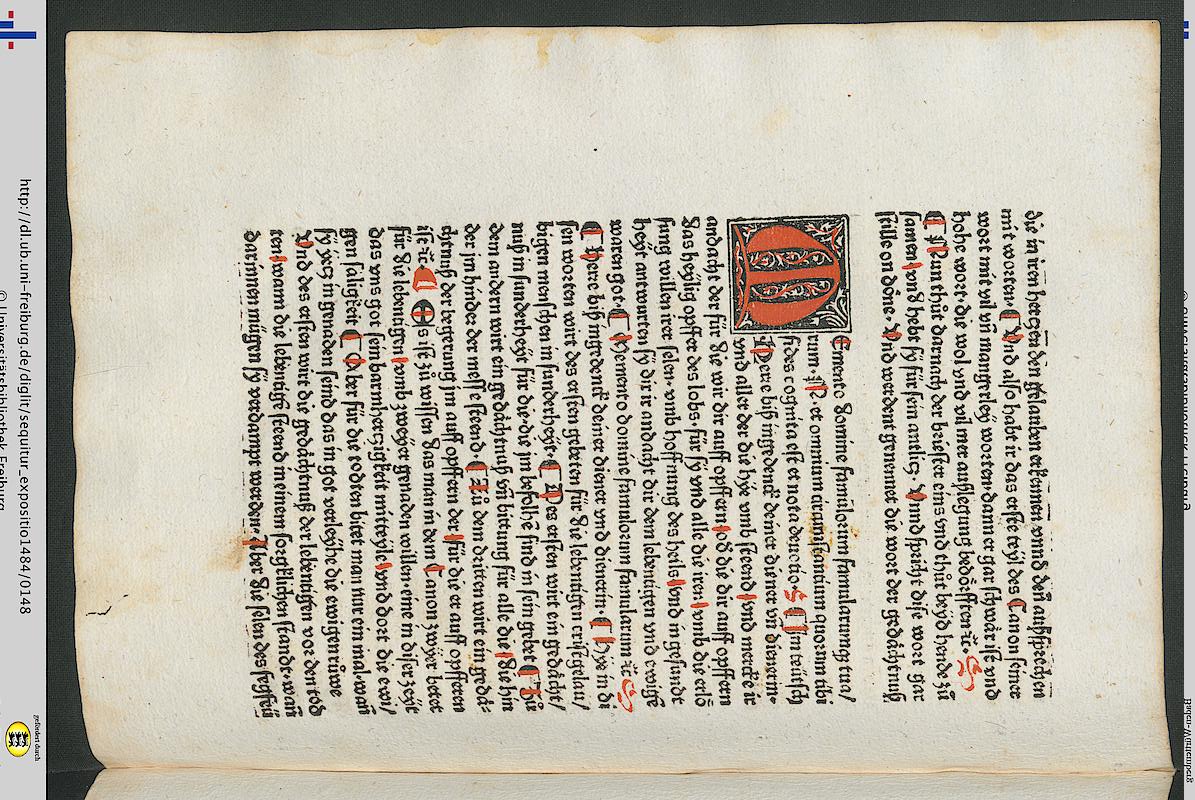 die in iren hertzen den gelauben erkennen vnnd den außsprechen
mit worten. Und also habt ir das erste teyl des Canon seiner
wort mit vil vñ mangerley worten. damit er gar schwär ist vnd
hohe wort. die wol vnd vil mer außlegung bedörfften ꝛc̃.
Nun thůt darnach der briester eins vnd thůt beyd hende zů
samen vnd hebt sy für sein antlitz. Unnd spricht dise wort gar
stille on döne. Und werdent genennet die wort der gedächtnuß
Memento domine famulorum famularumqꝫ tua/
rum. N. et omnium circumstantium quorum tibi
fides cognita est et nota deuotio. Im teütsch
Herre biß ingedenck deiner diener vñ dienerin.
vnd aller der die hye vmb steend vnd mercke ir
andacht der für die wir dir auff opffern od die dir auff opffern
das heylig opffer des lobs. für sy vnd alle die iren vmb die erlö
sung willen irer selen. vmb hoffnung des heils vnd in gesundt
heyt antwurten sy dir ir andacht dir dem lebentigen vnd ewige
waren got. Memento domine famulorum famularum ꝛc̃.
Herre biß ingedenck deiner diener vnd dienerin. Hye in di
sen worten wirt des ersten gebeten für die lebentigen cristgelau/
bigen menschen in sunderheyt. Des ersten wirt ein gedächt/
nuß in sunderheyt für die. die jm befolhe sind in sein gebet. Zů
dem andern wirt ein gedächtnuß vñ bittung für alle die die hin
der jm hinder der messe steend. Zů dem dritten wirt ein gedä
chtnuß der begerung jm auff opffern der für die er auff opfferen
ist ꝛc̃. Es ist zů wissen das man in dem Canon zwyer betet
für die lebentigen vmb zweyer genaden willen. eine in diser zeyt
das vns got sein barmhertzigkeit mitteyle vnd dort die ewi/
gen säligkeit. Aber für die todten bitet man nur ein mal. wañ
sy yetz in genaden seind das in got verleyhe die ewigen rüwe
Und des ersten wirt die gedächtnuß der lebentigen vor den tod
ten wann die lebentige steend in einem sorgklichen standt. wañ
darinnen mügen sy verdampt werden. Aber die selen des fegfeü
http://dl.ub.uni-freiburg.de/diglit/sequitur_expositio1484/0148
© Universitätsbibliothek Freiburg
gefördert durch